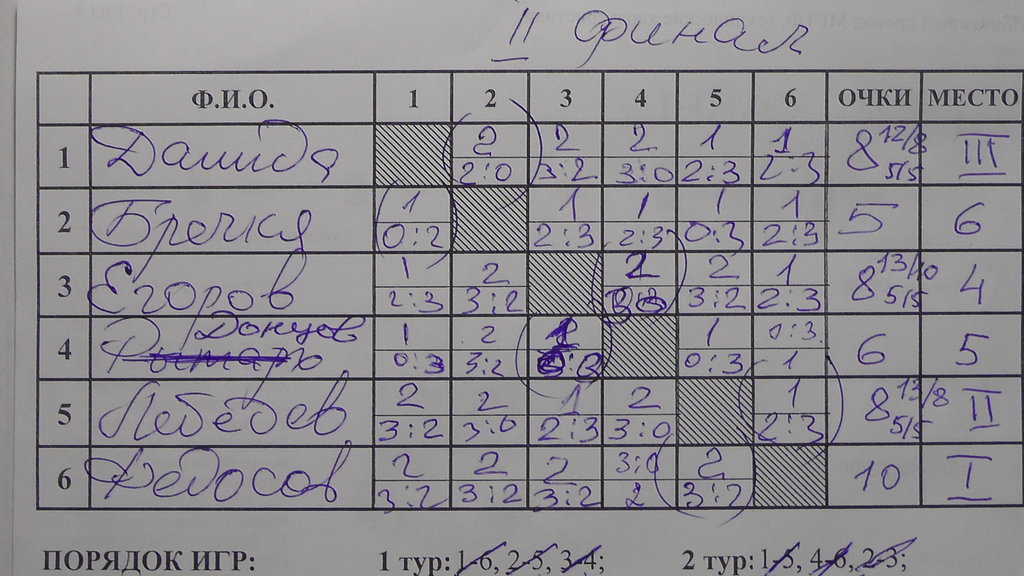 II финал
Ф.И.О. 1 2 3 4 5 6 ОЧКИ МЕСТО
1 2 2 2 1 1 8 12/8 III
2:0 3:2 3:0 2:3 2:3 5/5
2 Бречка 1 1 1 1 1 5 6
0:2 2:3 2:3 0:3 2:3
3 Егоров 1 2 2 2 1 8 13/10 4
2:3 3:2 3:2 2:3 5/5
4 Донцов 1 2 1 1 0:3 6 5
0:3 3:2 0:3 0:3 1
5 Лебедев 2 2 1 2 1 8 13/8 II
3:2 3:0 2:3 3:0 2:3 5/5
6 Федосов 2 2 2 3:0 2 10 I
3:2 3:2 3:2 2 3:2
ПОРЯДОК ИГР: 1 тур: 1-6, 2-5, 3-4; 2 тур: 1-5, 4-6, 2-3;